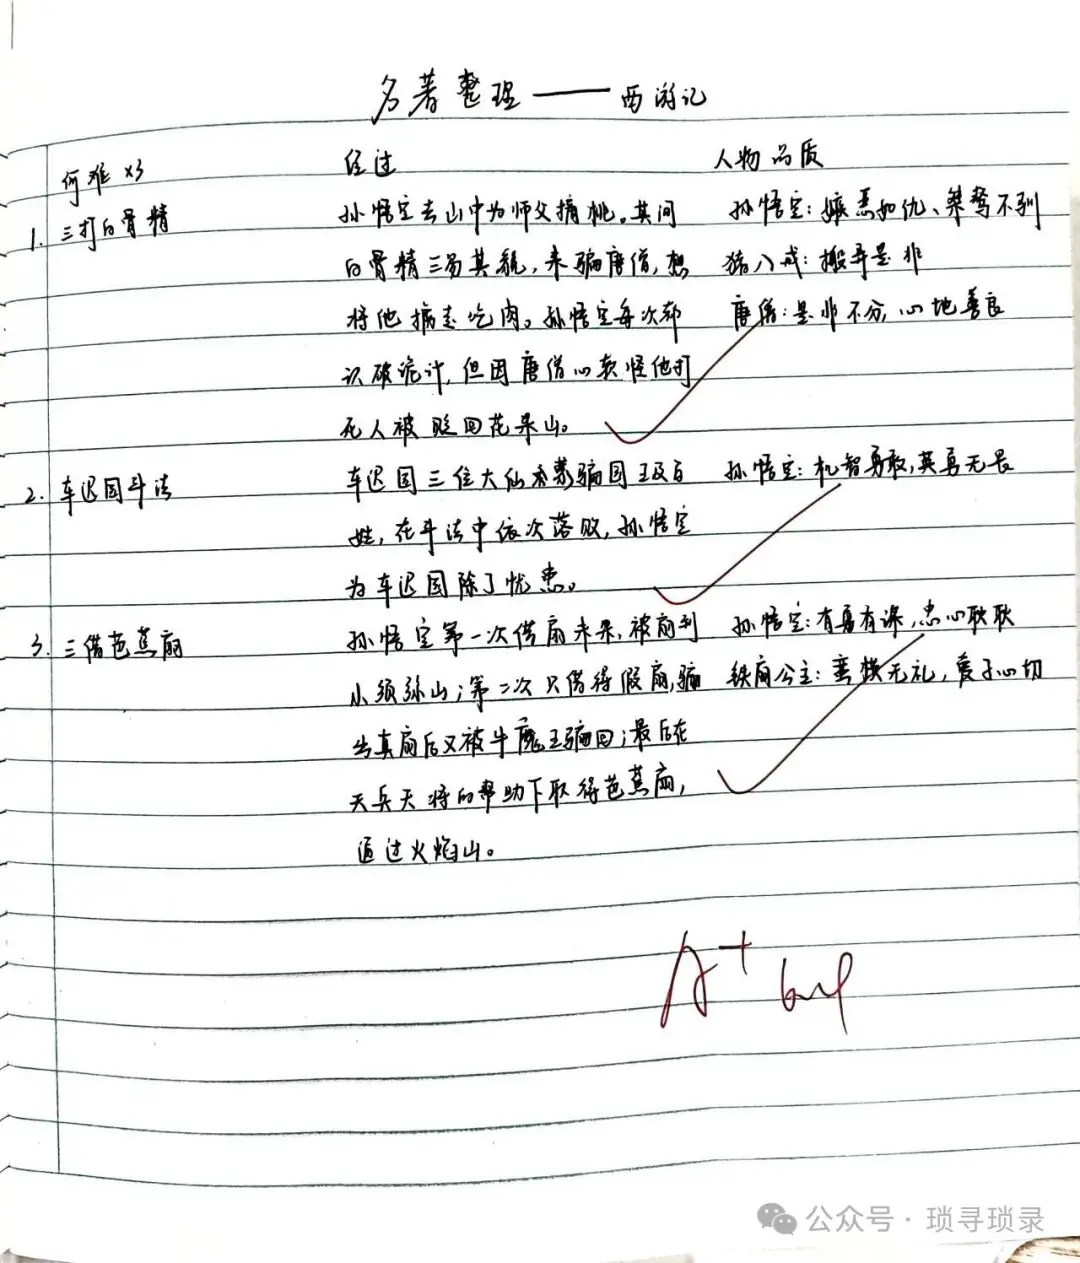 名著整理——西游记
何难 x3 经过 人物品质
1. 三打白骨精 孙悟空去山中为师父摘桃。其间 孙悟空:嫉恶如仇、桀骜不驯
白骨精三易其貌,来骗唐僧,想 猪八戒:搬弄是非
将他掳走吃肉。孙悟空每次都 唐僧:是非不分,心地善良
识破诡计,但因唐僧心软怪他打
死人被贬回花果山。
2. 车迟国斗法 车迟国三位大仙蒙骗国王及百 孙悟空:机智勇敢,英勇无畏
姓,在斗法中依次落败,孙悟空
为车迟国除了忧患。
3. 三借芭蕉扇 孙悟空第一次借扇未果,被扇到 孙悟空:有勇有谋,忠心耿耿
小须弥山;第二次只借得假扇,骗 铁扇公主:蛮横无礼,爱子心切
出真扇后又被牛魔王骗回;最后在
天兵天将的帮助下取得芭蕉扇,
通过火焰山。
A+
公众号·琐寻琐录